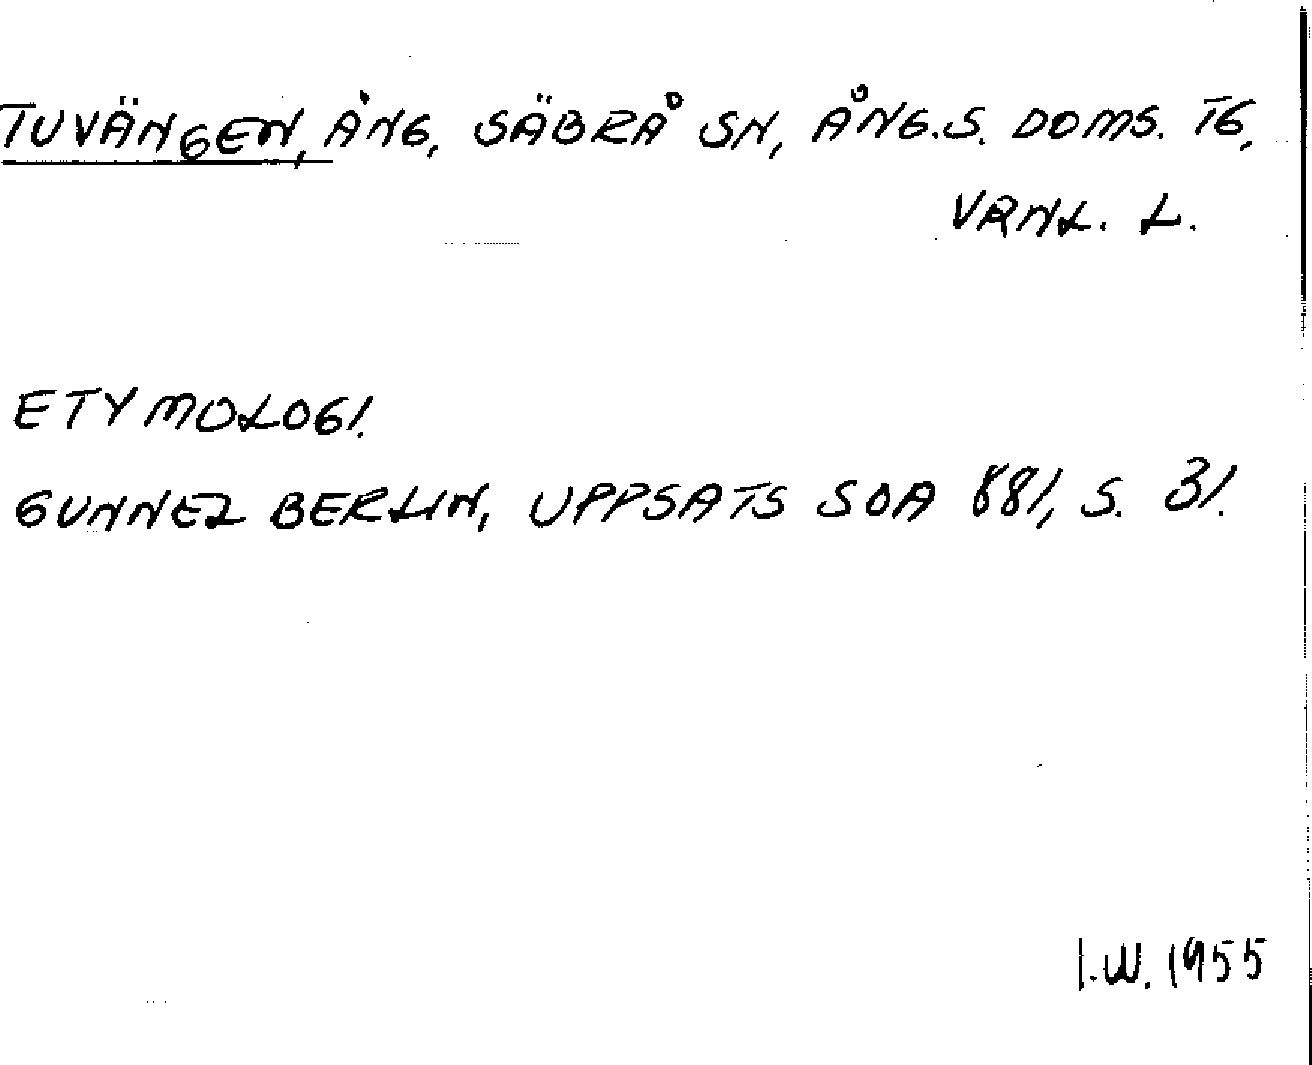 TUVÄNGEN, ÄNG, SÄBRÅ SN, ÅNG.S. DOMS. TG,
VRNL. L.
ETYMOLOGI.
GUNNEL BERLIN, UPPSATS SOA 881, S. 31.
I.W. 1955